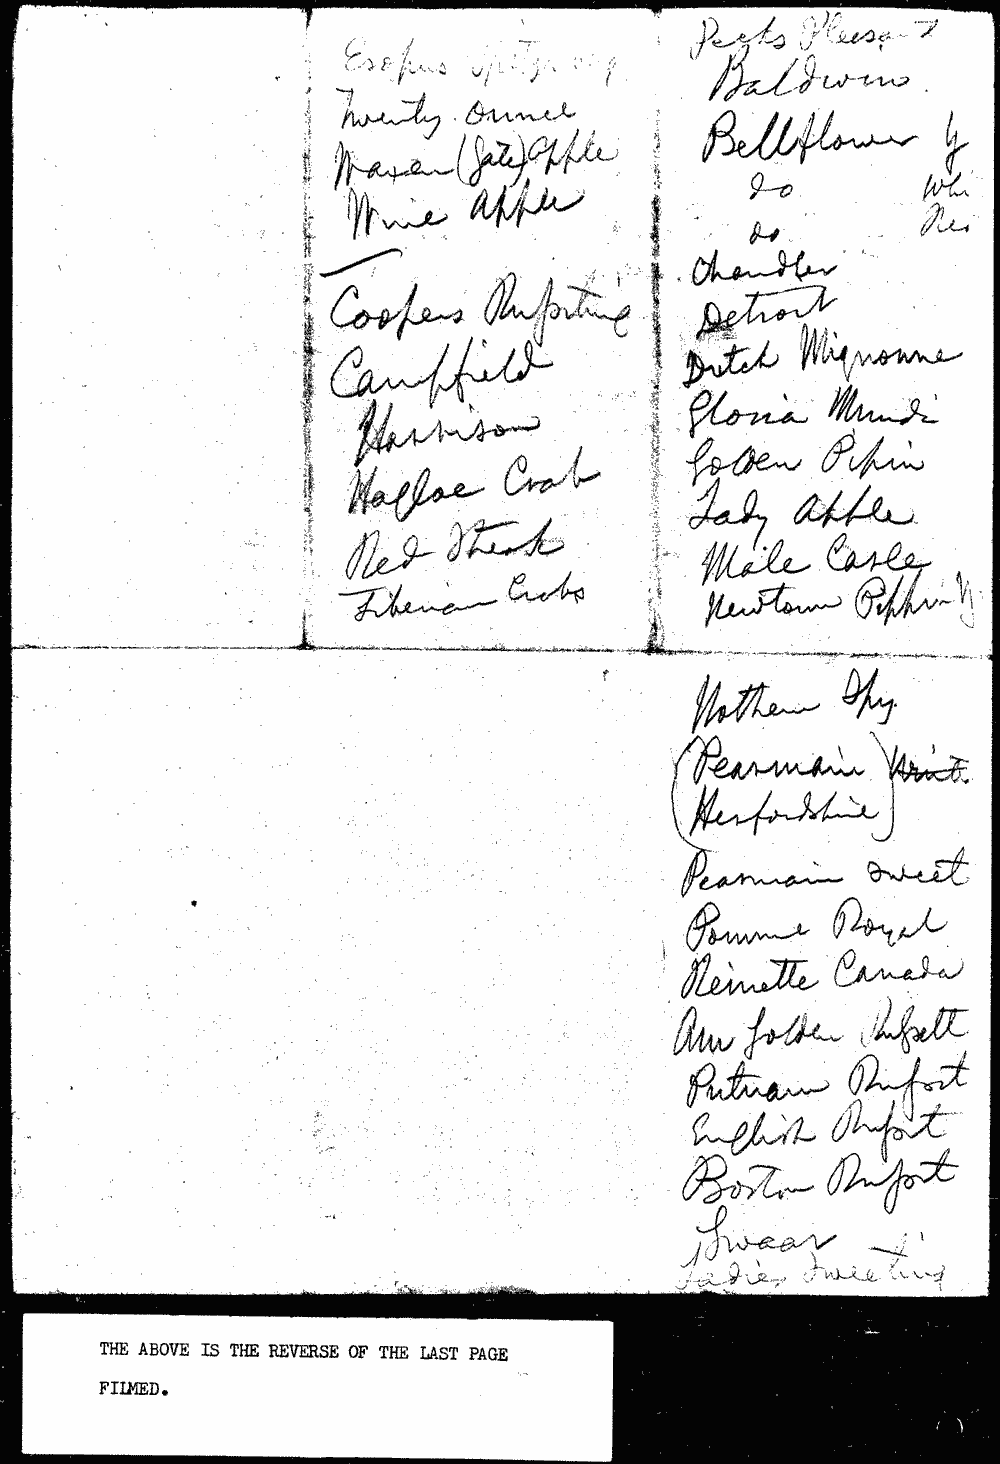 Esopus Spitz
Twenty Ounce
Waxen (Gate) Apple
Wine Apple
Coopers Russeting
Campfield
Harrison
Hagloe Crab
Red Streak
Siberian Crabs
Pecks Pleasant
Baldwins
Bellflower Y
do Whi
do Re
Chandler
Detroit
Dutch Mignonne
Gloria Mundi
Golden Pipin
Lady Apple
Male Carle
Newtown Pippin Y
Nothern Spy
(Pearmain)
Herfordshire
Pearmain Sweet
Pomme Royal
Reinette Canada
Am Golden Russett
Putnam Russet
English Russet
Boston Russet
Swaar
Ladies Sweeting
THE ABOVE IS THE REVERSE OF THE LAST PAGE
FILMED.